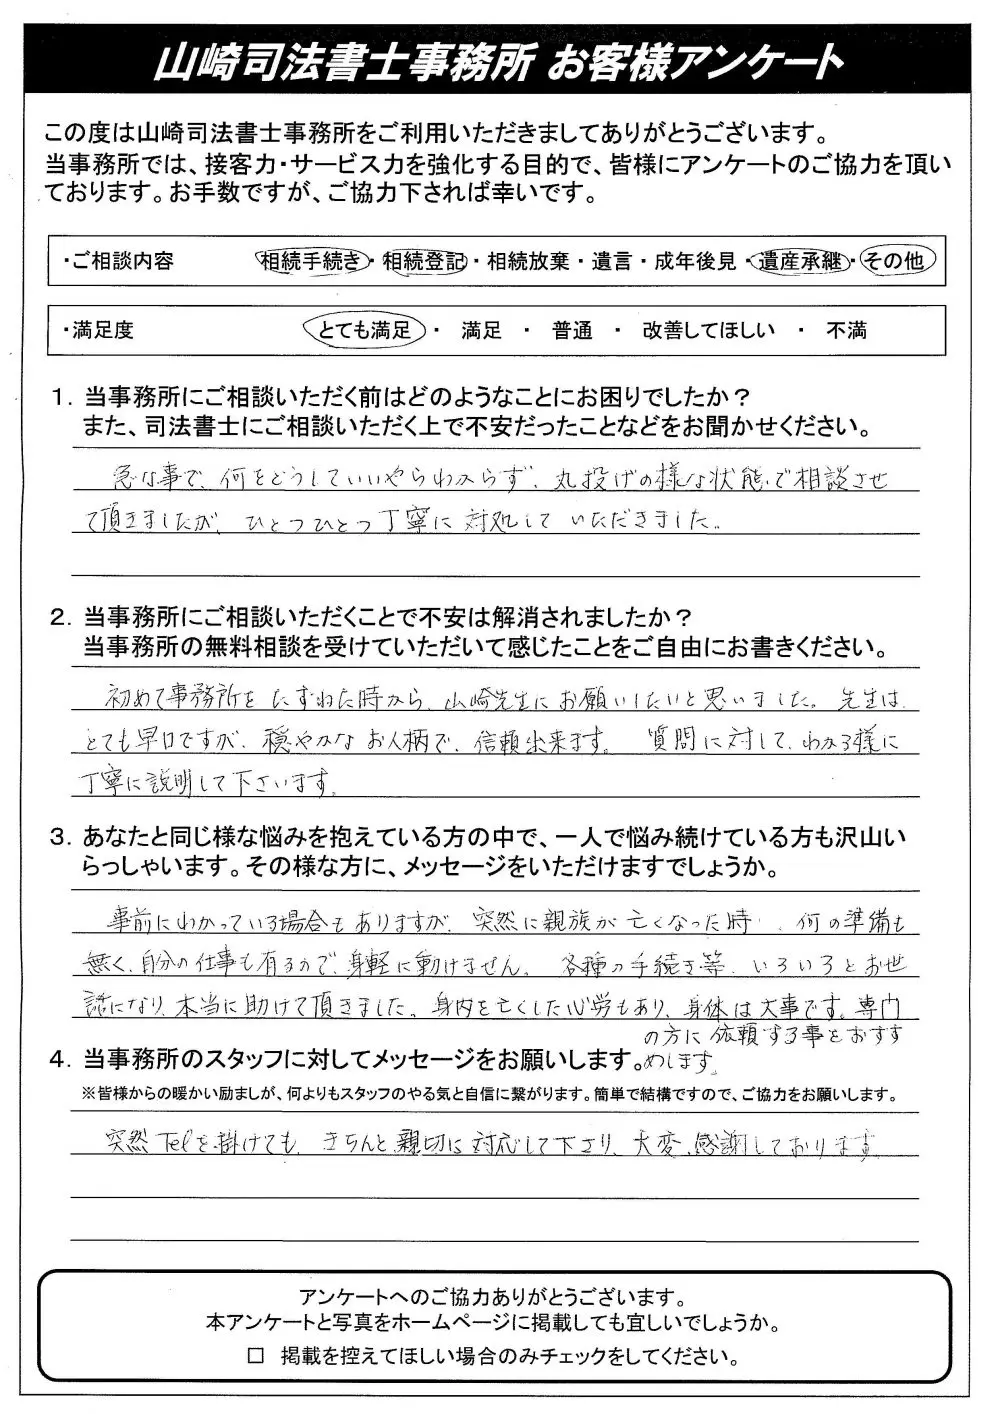 山崎司法書士事務所 お客様アンケート
この度は山崎司法書士事務所をご利用いただきましてありがとうございます。
当事務所では、接客力・サービス力を強化する目的で、皆様にアンケートのご協力を頂い
ております。お手数ですが、ご協力下されば幸いです。
・ご相談内容 相続手続き・相続登記・相続放棄・遺言・成年後見・遺産承継・その他
・満足度 とても満足 ・ 満足 ・ 普通 ・ 改善してほしい ・ 不満
1. 当事務所にご相談いただく前はどのようなことにお困りでしたか？
また、司法書士にご相談いただく上で不安だったことなどをお聞かせください。
急な事で、何をどうしていいやらわからず、丸投げの様な状態で相談させ
て頂きましたが、ひとつひとつ丁寧に対処していただきました。
2. 当事務所にご相談いただくことで不安は解消されましたか？
当事務所の無料相談を受けていただいて感じたことをご自由にお書きください。
初めて事務所をたずねた時から、山崎先生にお願いしたいと思いました。先生は
とても早口ですが、穏やかなお人柄で、信頼出来ます。質問に対して、わかる様に
丁寧に説明して下さいます。
3. あなたと同じ様な悩みを抱えている方の中で、一人で悩み続けている方も沢山い
らっしゃいます。その様な方に、メッセージをいただけますでしょうか。
事前にわかっている場合もありますが、突然に親族が亡くなった時、何の準備も
無く、自分の仕事も有るので、身軽に動けません。各種の手続き等、いろいろとお世
話になり、本当に助けて頂きました。身内を亡くした心労もあり、身体は大事です。専門
の方に依頼する事をおすす
めします。
4. 当事務所のスタッフに対してメッセージをお願いします。
※皆様からの暖かい励ましが、何よりもスタッフのやる気と自信に繋がります。簡単で結構ですので、ご協力をお願いします。
突然Telを掛けても、きちんと親切に対応して下さり、大変、感謝しております。
アンケートへのご協力ありがとうございます。
本アンケートと写真をホームページに掲載しても宜しいでしょうか。
□ 掲載を控えてほしい場合のみチェックをしてください。